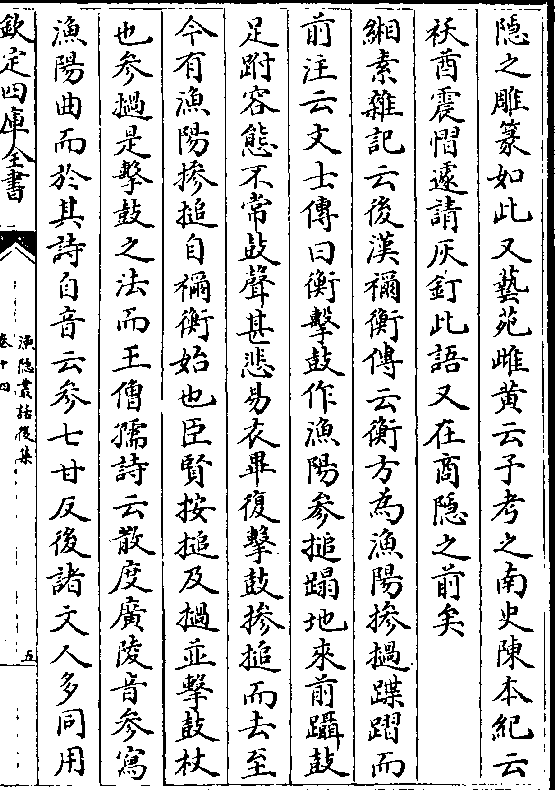 隱之雕篆如此又藝苑雌黄云予考之南史陳本紀云
袄酋震慴遽請灰釘此語又在商隱之前矣
緗素雜記云後漢禰衡傳云衡方為漁陽摻撾蹀𨂂而
前注云文士傳曰衡擊鼓作漁陽参搥蹋地來前躡鼓
足跗容態不常鼓聲甚悲易衣畢復擊鼓摻搥而去至
今有漁陽摻搥自禰衡始也臣賢按搥及撾並擊鼓杖
也参撾是擊鼓之法而王僧孺詩云散度廣陵音参寫
漁陽曲而於其詩自音云参七甘反後諸文人多同用
欽定四庫全書
漁隱叢話後集
卷十四
五